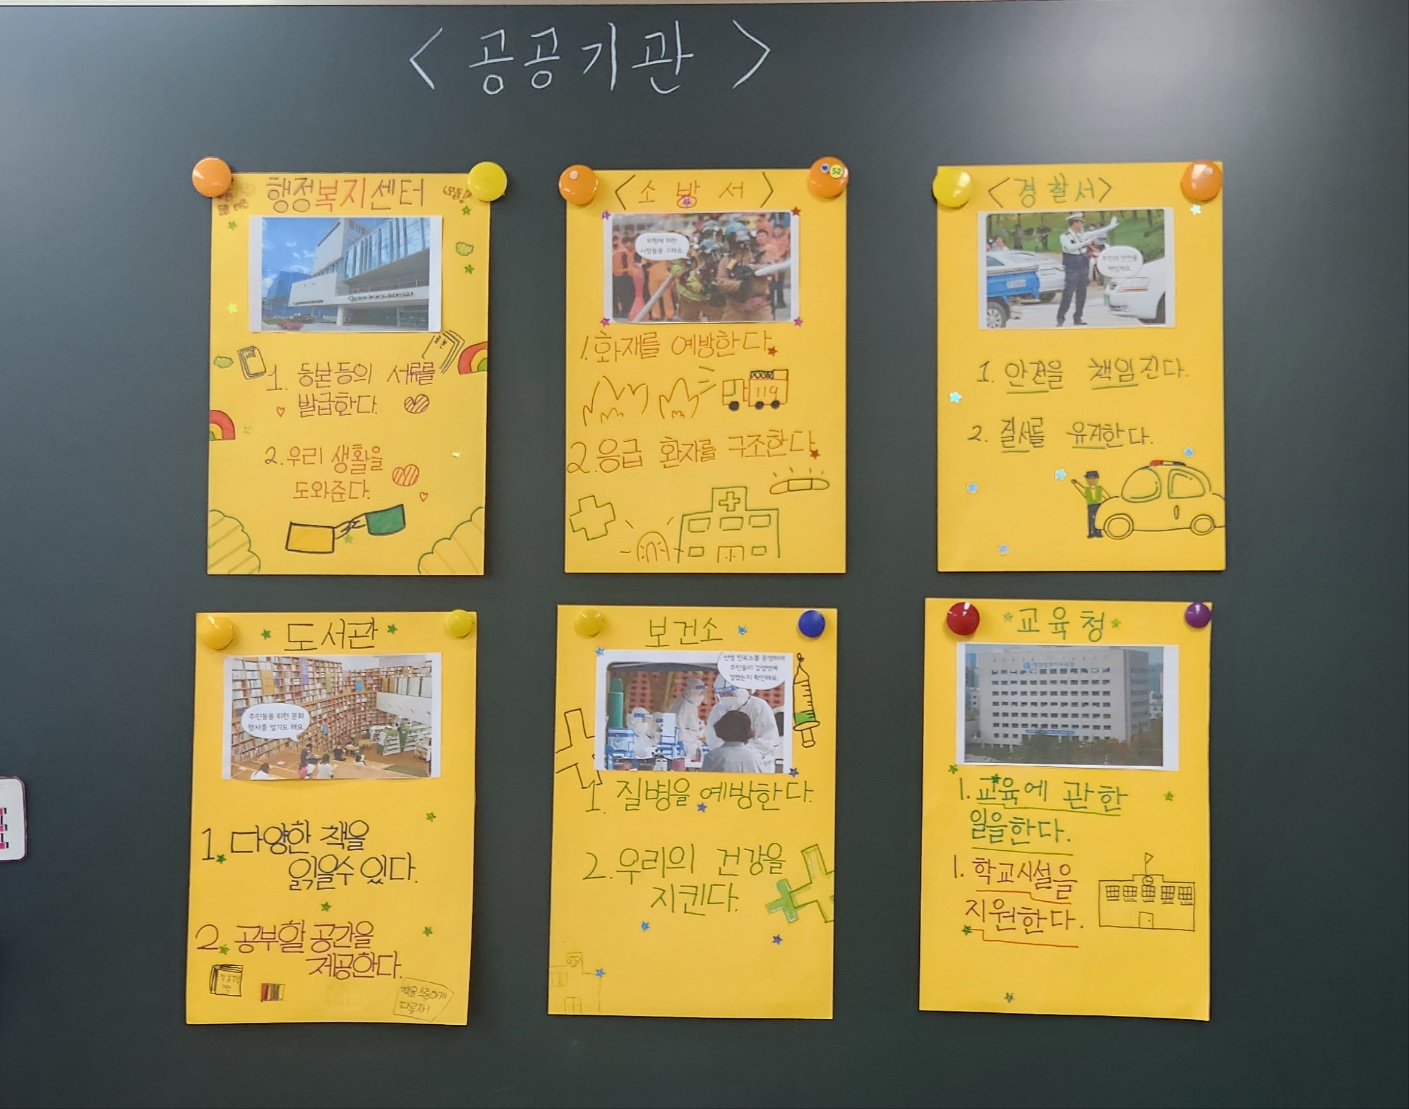 <공공기관>
행정복지센터
1. 등본등의 서류를
발급한다.
2. 우리 생활을
도와준다.
<소방서>
위험에 처한
사람들을 구해요.
1. 화재를 예방한다.
119
2. 응급 환자를 구조한다.
<경찰서>
주민의 안전을
책임져요.
1. 안전을 책임진다.
2. 질서를 유지한다.
도서관
주민들을 위한 문화
행사를 열기도 해요.
1. 다양한 책을
읽을수 있다.
2. 공부할 공간을
제공한다.
책을 소중하게
다루자!
보건소
선별 진료소를 운영하여
주민들이 감염병에
걸렸는지 확인해요.
1. 질병을 예방한다.
2. 우리의 건강을
지킨다.
교육청
1. 교육에 관한
일을한다.
1. 학교시설을
지원한다.